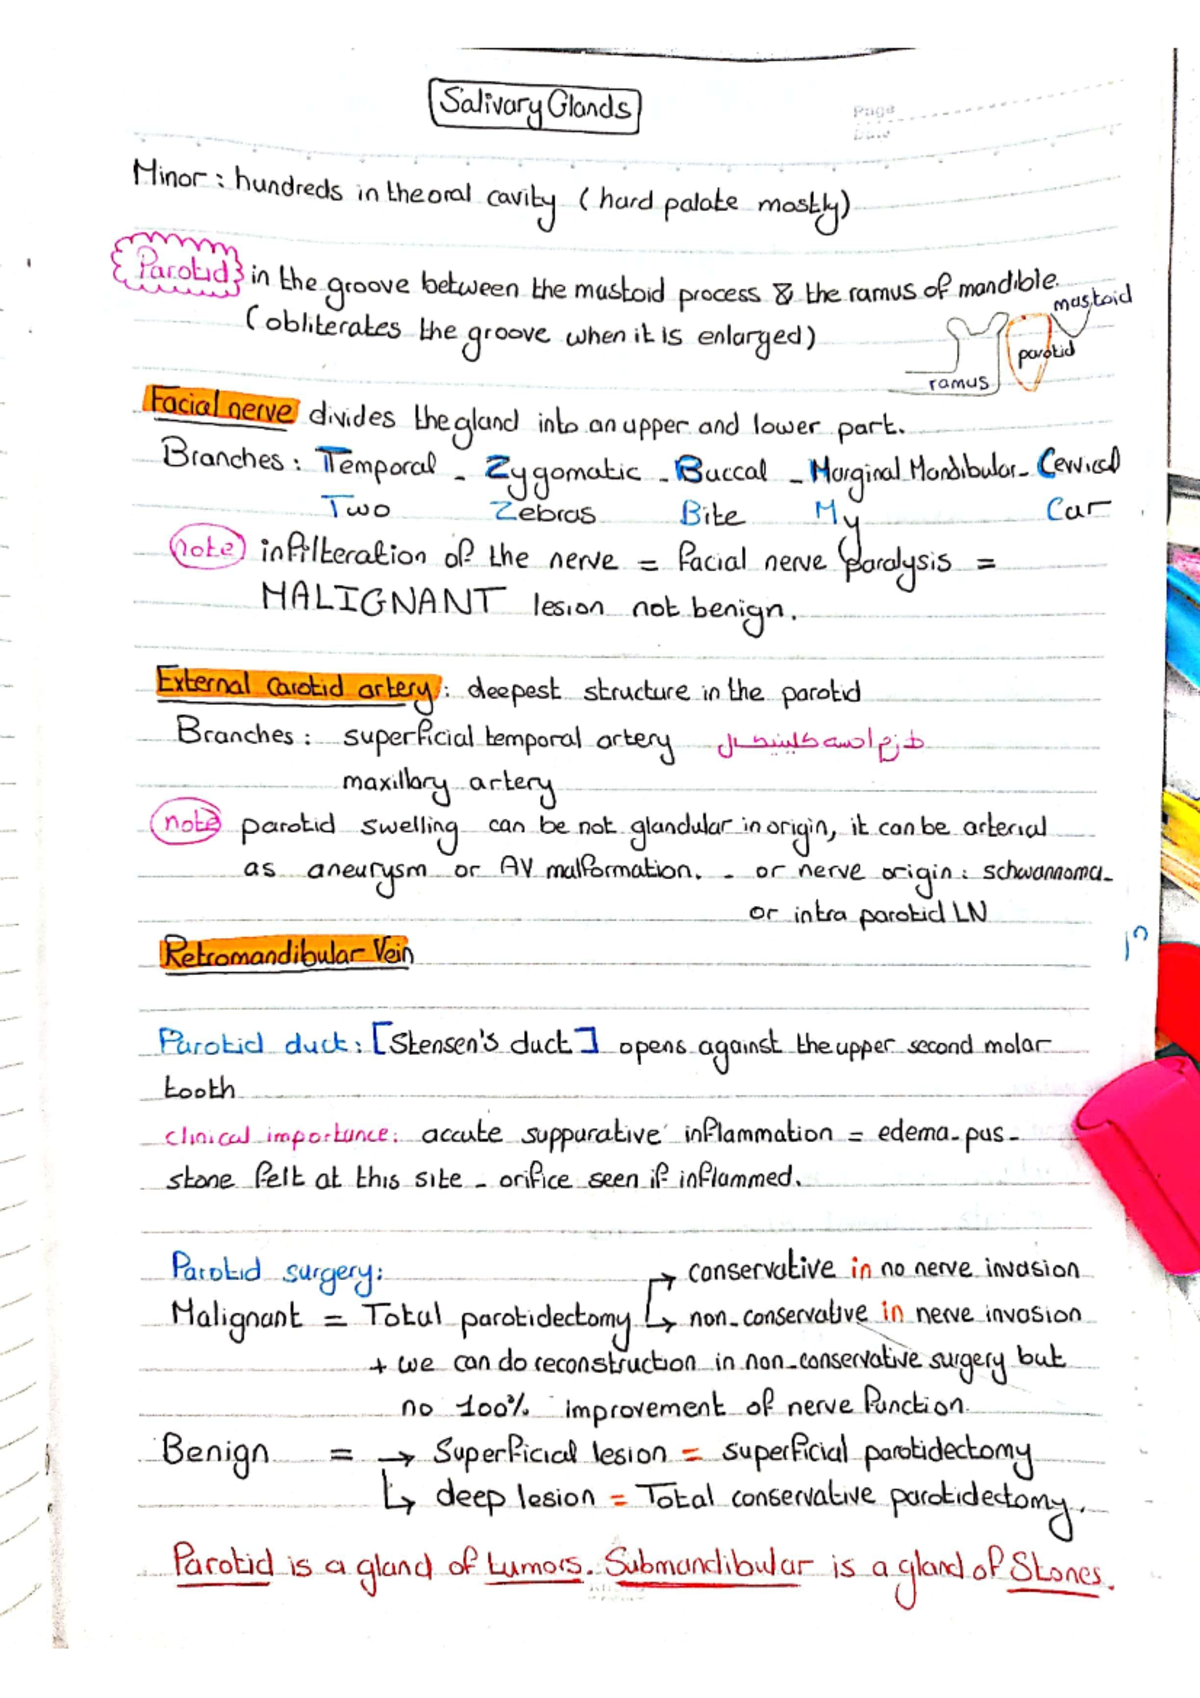 Salivary Glands
Page
Date
Minor : hundreds in the oral cavity ( hard palate mostly)
Parotid in the groove between the mastoid process & the ramus of mandible.
(obliterates the groove when it is enlarged)
mastoid
parotid
ramus
Facial nerve divides the gland into an upper and lower part.
Branches : Temporal - Zygomatic - Buccal - Marginal Mandibular - Cervical
Two Zebras Bite My Car
note infilteration of the nerve = facial nerve paralysis =
MALIGNANT lesion not benign.
External Carotid artery : deepest structure in the parotid
Branches : superficial temporal artery
maxillary artery
note parotid swelling can be not glandular in origin, it can be arterial
as aneurysm or AV malformation. - or nerve origin : schwannoma -
or intra parotid LN
Retromandibular Vein
Parotid duct : [Stensen's duct] opens against the upper second molar
tooth
clinical importance : accute suppurative inflammation = edema - pus -
stone felt at this site - orifice seen if inflammed.
Parotid surgery :
→ conservative in no nerve invasion
Malignant = Total parotidectomy ↳ non-conservative in nerve invasion
+ we can do reconstruction in non-conservative surgery but
no 100% improvement of nerve function.
Benign = → Superficial lesion = superficial parotidectomy
↳ deep lesion = Total conservative parotidectomy.
Parotid is a gland of tumors. Submandibular is a gland of Stones.